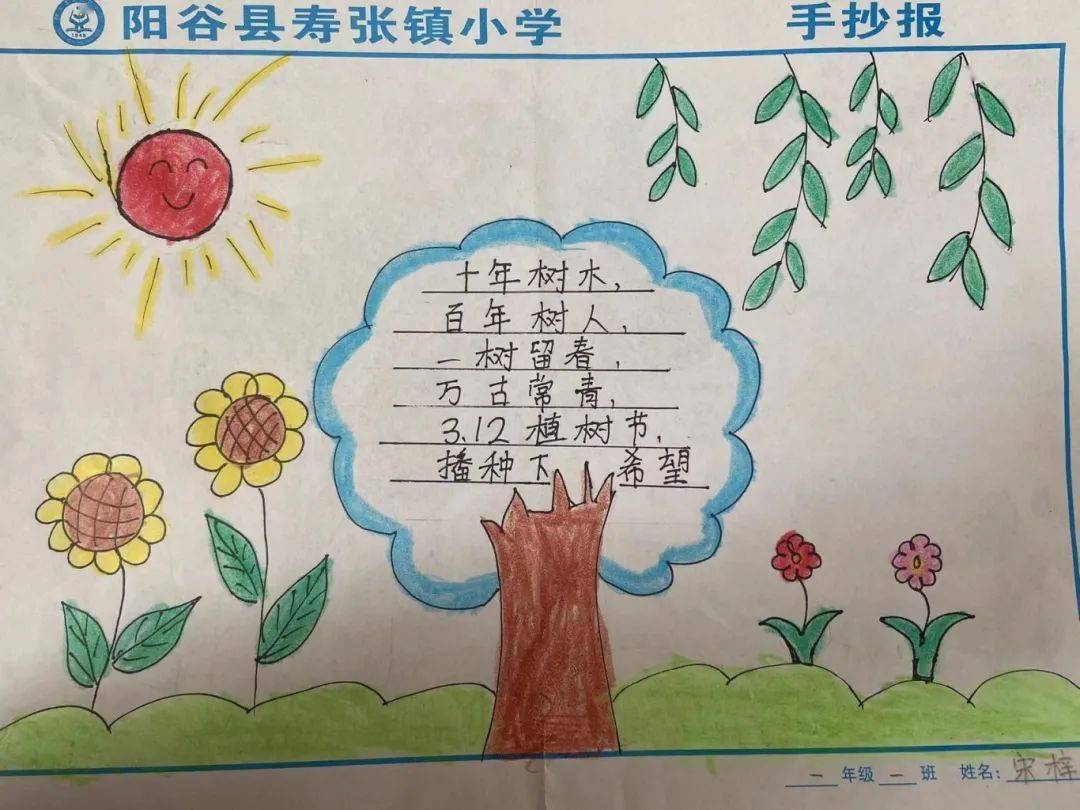 阳谷县寿张镇小学 手抄报
十年树木,
百年树人,
一树留春,
万古常青,
3.12植树节,
播种下 希望
一年级一班 姓名:宋梓